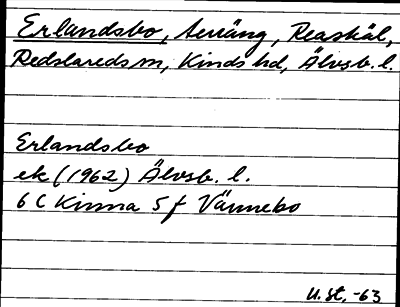 Erlandsbo, terräng, Reaskäl,
Redslareds sn, Kinds hd, Älvsb. l.
Erlandsbo
ek (1962) Älvsb. l.
6 C Kinna 5 f Vännebo
U.St. -63